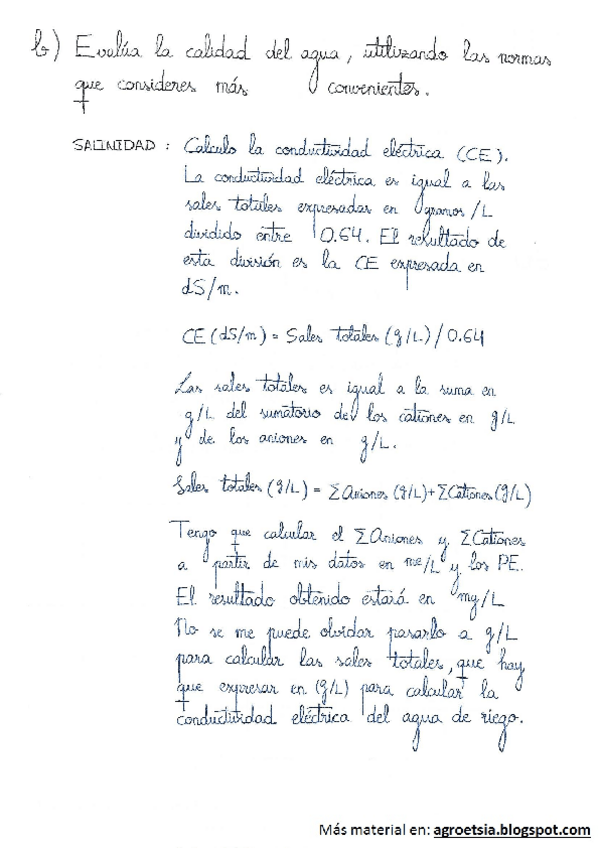 b) Evalúa la calidad del agua, utilizando las normas
que consideres más convenientes.
SALINIDAD : Calculo la conductividad eléctrica (CE).
La conductividad eléctrica es igual a las
sales totales expresadas en gramos/L
dividido entre 0.64. El resultado de
esta división es la CE expresada en
dS/m.
CE (dS/m) = Sales totales (g/L) / 0.64
Las sales totales es igual a la suma en
g/L del sumatorio de los cationes en g/L
y de los aniones en g/L.
Sales totales (g/L) = ΣAniones (g/L) + ΣCationes (g/L)
Tengo que calcular el ΣAniones y ΣCationes
a partir de mis datos en me/L y los PE.
El resultado obtenido estará en mg/L
No se me puede olvidar pasarlo a g/L
para calcular las sales totales, que hay
que expresar en (g/L) para calcular la
conductividad eléctrica del agua de riego.
Más material en: agroetsia.blogspot.com